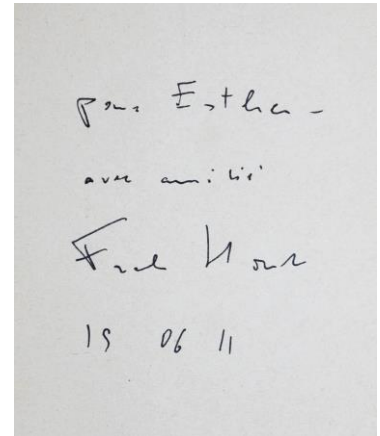 pour Esther -
avec amitié
Fred
19 06 11